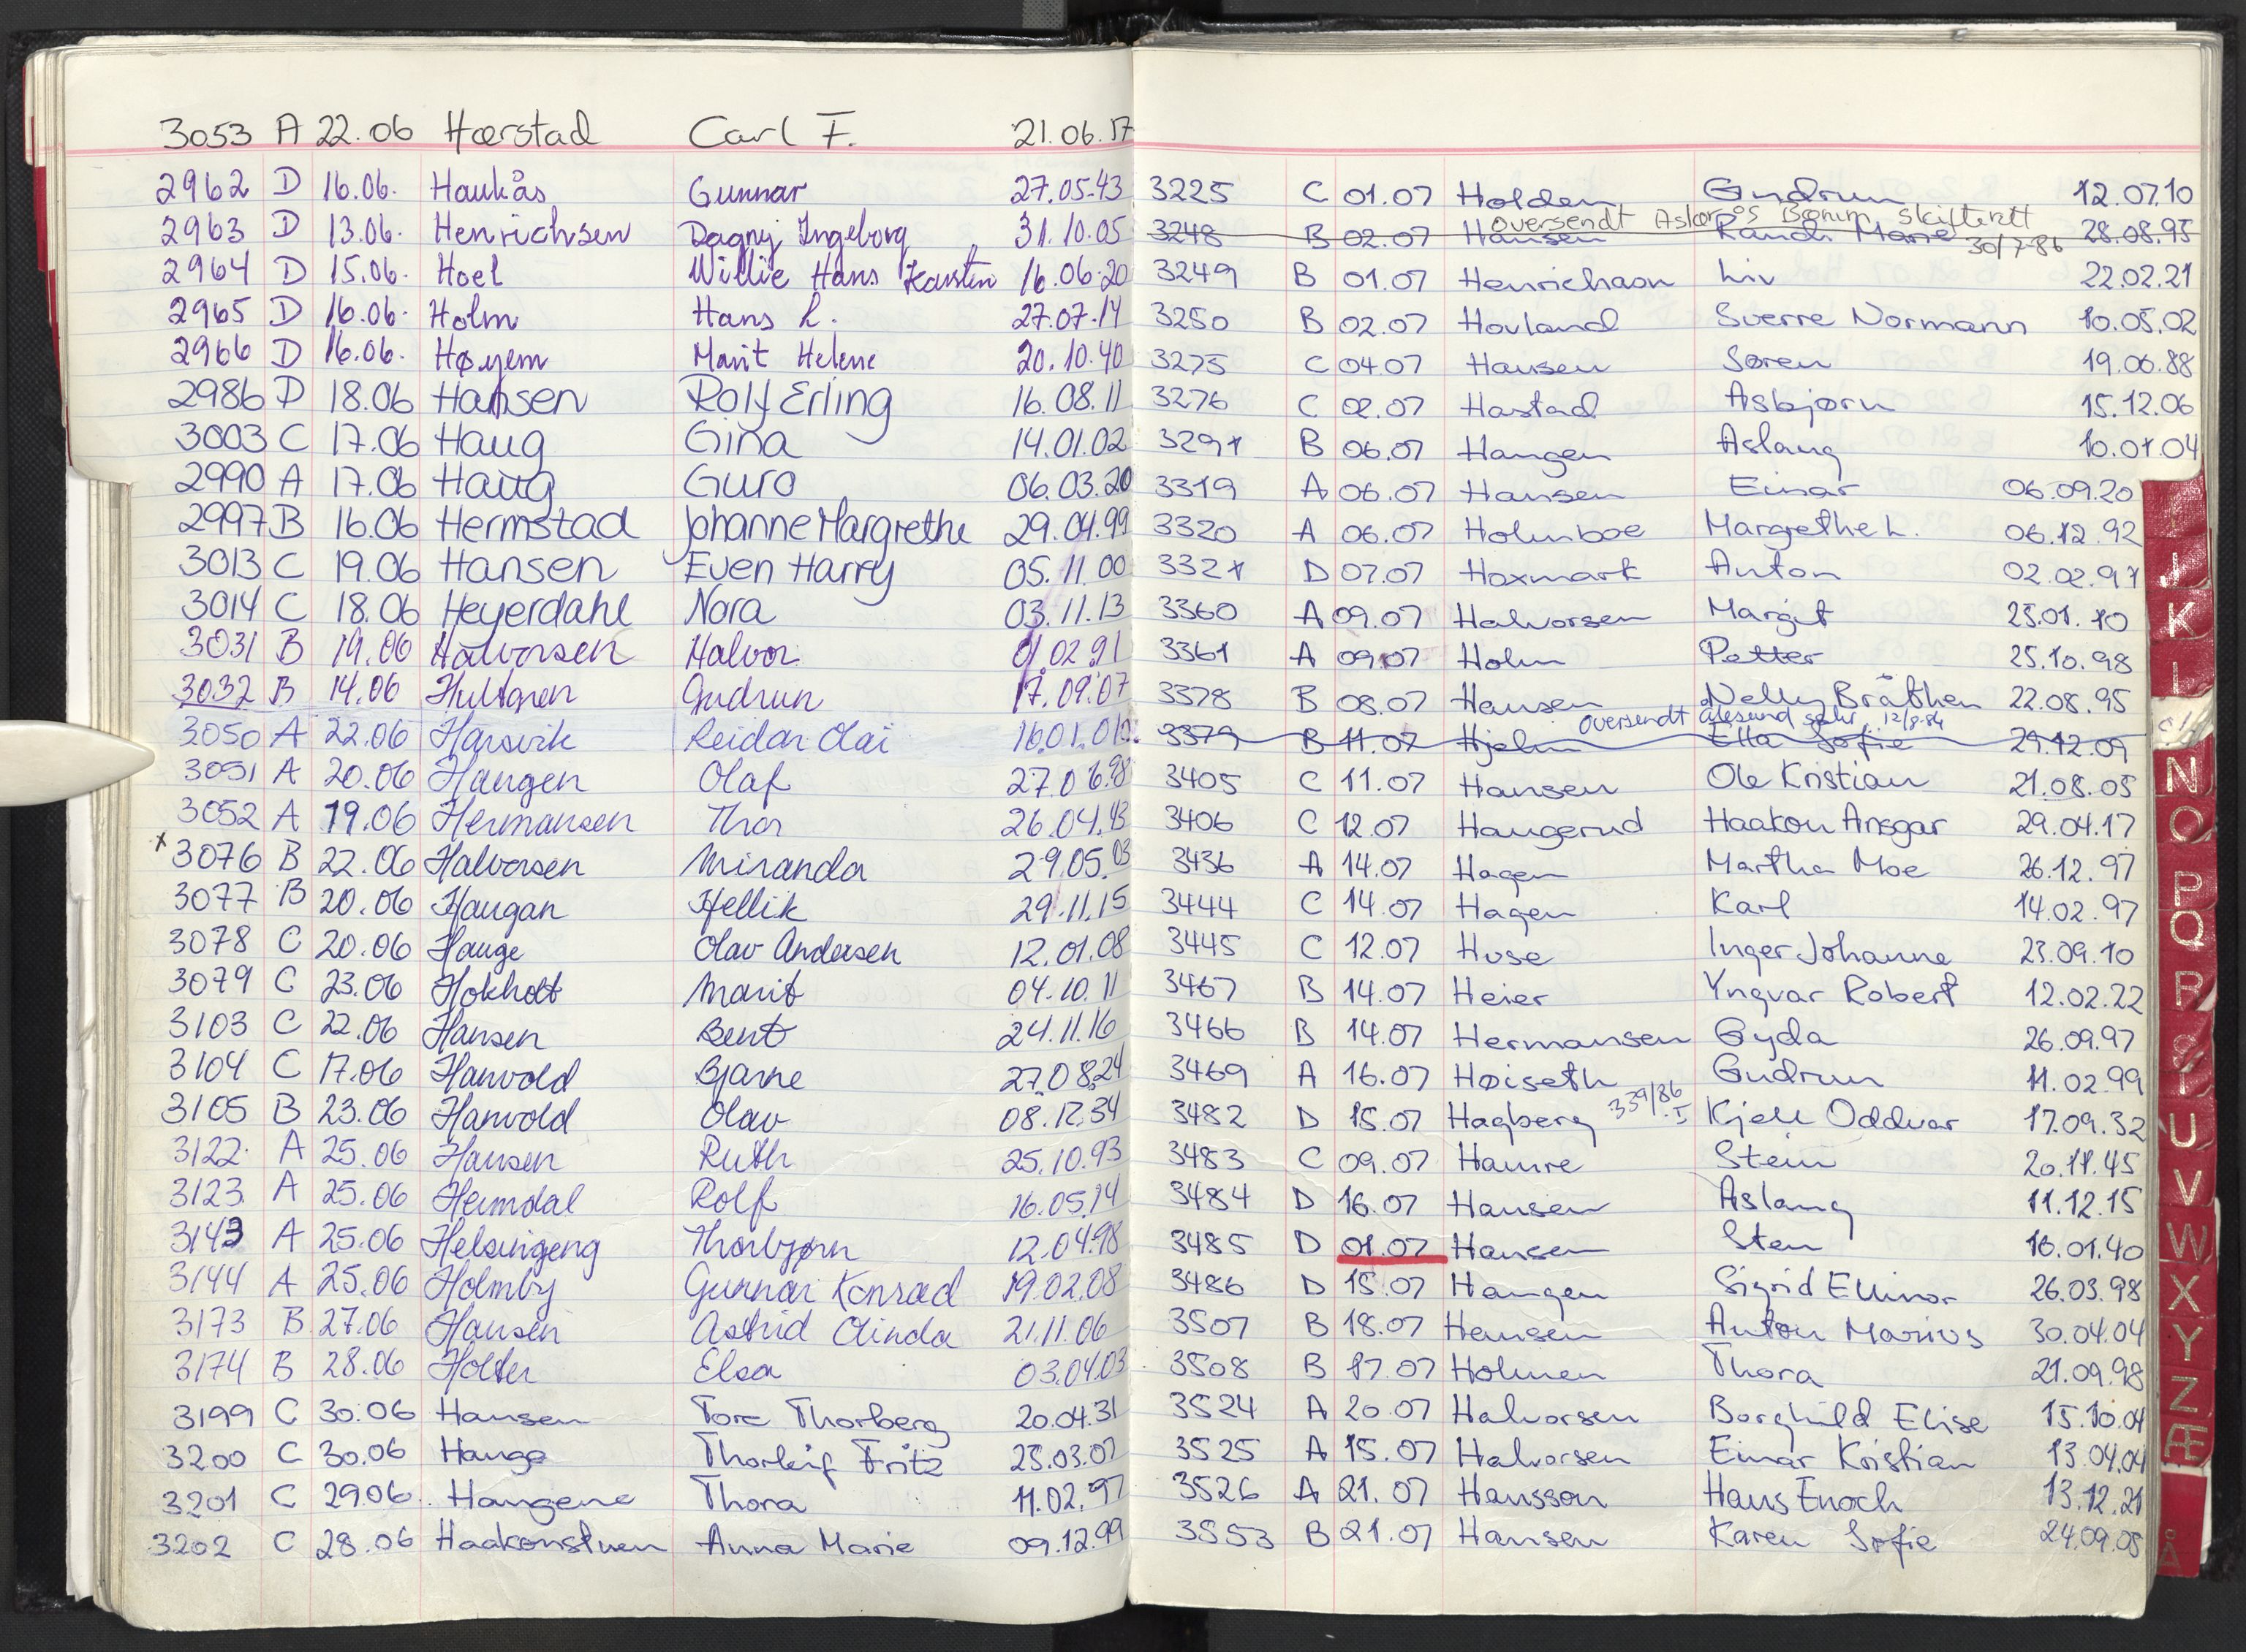 3053 A 22.06 Hærstad Carl F. 21.06.17
2962 D 16.06. Haukås Gunnar 27.05.43
2963 D 13.06. Henrichsen Dagny Ingeborg 31.10.05
2964 D 15.06. Hoel Willie Hans Karsten 16.06.20
2965 D 16.06. Holm Hans L. 27.07.14
2966 D 16.06. Høyem Marit Helene 20.10.40
2986 D 18.06 Hansen Rolf Erling 16.08.11
3003 C 17.06 Haug Gina 14.01.02
2990 A 17.06 Haug Guro 06.03.20
2997 B 16.06 Hermstad Johanne Margrethe 29.04.99
3013 C 19.06 Hansen Even Harry 05.11.00
3014 C 18.06 Heyerdahl Nora 03.11.13
3031 B 19.06 Halvorsen Halvor 01.02.91
3032 B 14.06 Hultgren Gudrun 17.09.07
3050 A 22.06 Harsvik Reidar Olai 16.01.01
3051 A 20.06 Haugen Olaf 27.06.98
3052 A 19.06 Hermansen Thor 26.04.43
x 3076 B 22.06 Halvorsen Miranda 29.05.03
3077 B 20.06 Haugan Hellik 29.11.15
3078 C 20.06 Hauge Olav Andersen 12.01.08
3079 C 23.06 Hokholt Marit 04.10.11
3103 C 22.06 Hansen Bent 24.11.16
3104 C 17.06 Hanvold Bjarne 27.08.24
3105 B 23.06 Hanvold Olav 08.12.34
3122 A 25.06 Hansen Ruth 25.10.93
3123 A 25.06 Heimdal Rolf 16.05.14
3143 A 25.06 Helsingeng Thorbjørn 12.04.98
3144 A 25.06 Holmby Gunnar Konrad 19.02.08
3173 B 27.06 Hansen Astrid Olinda 21.11.06
3174 B 28.06 Holter Elsa 03.04.03
3199 C 30.06 Hansen Tore Thorberg 20.04.31
3200 C 30.06 Hauge Thorleif Fritz 25.03.07
3201 C 29.06 Haugene Thora 11.02.97
3202 C 28.06 Haakonstuen Anna Marie 09.12.99
3225 C 01.07 Holden Gudrun 12.07.10
oversendt Asker og Bærum skifterett 30/7-86
3248 B 02.07 Hansen Randi Marie 28.08.95
3249 B 01.07 Henrichson Liv 22.02.21
3250 B 02.07 Hovland Sverre Normann 10.05.02
3275 C 04.07 Hansen Søren 19.06.88
3276 C 02.07 Hastad Asbjørn 15.12.06
3291 B 06.07 Haugen Aslaug 10.01.04
3319 A 06.07 Hansen Einar 06.09.20
3320 A 06.07 Holmboe Margrethe L. 06.12.92
3321 D 07.07 Hoxmark Anton 02.02.97
3360 A 09.07 Halvorsen Margit 25.01.10
3361 A 09.07 Holm Petter 25.10.98
3378 B 08.07 Hansen Nelly Bråthen 22.08.95
oversendt Ålesund 12/8-86
3379 B 11.07 Hjelm Ella Sofie 29.12.09
3405 C 11.07 Hansen Ole Kristian 21.08.05
3406 C 12.07 Haugerud Haakon Ansgar 29.04.17
3436 A 14.07 Hagen Martha Moe 26.12.97
3444 C 14.07 Hagen Karl 14.02.97
3445 C 12.07 Huse Inger Johanne 23.09.10
3467 B 14.07 Heier Yngvar Robert 12.02.22
3466 B 14.07 Hermansen Gyda 26.09.97
3469 A 16.07 Høiseth Gudrun 11.02.99
3482 D 15.07 Hagberg 339/86 I Kjell Oddvar 17.09.32
3483 C 09.07 Hamre Stein 20.11.45
3484 D 16.07 Hansen Aslaug 11.12.15
3485 D 01.07 Hansen Sten 16.01.40
3486 D 15.07 Haugen Sigrid Ellinor 26.03.98
3507 B 18.07 Hansen Anton Marius 30.04.04
3508 B 17.07 Holmen Thora 21.09.98
3524 A 20.07 Halvorsen Borghild Elise 15.10.01
3525 A 15.07 Halvorsen Einar Kristian 13.04.04
3526 A 21.07 Hansson Hans Enoch 13.12.21
3553 B 21.07 Hansen Karen Sofie 24.09.08
J
K
L
N
O
P
Q
R
U
V
W
X
Y
Z
Æ
Å